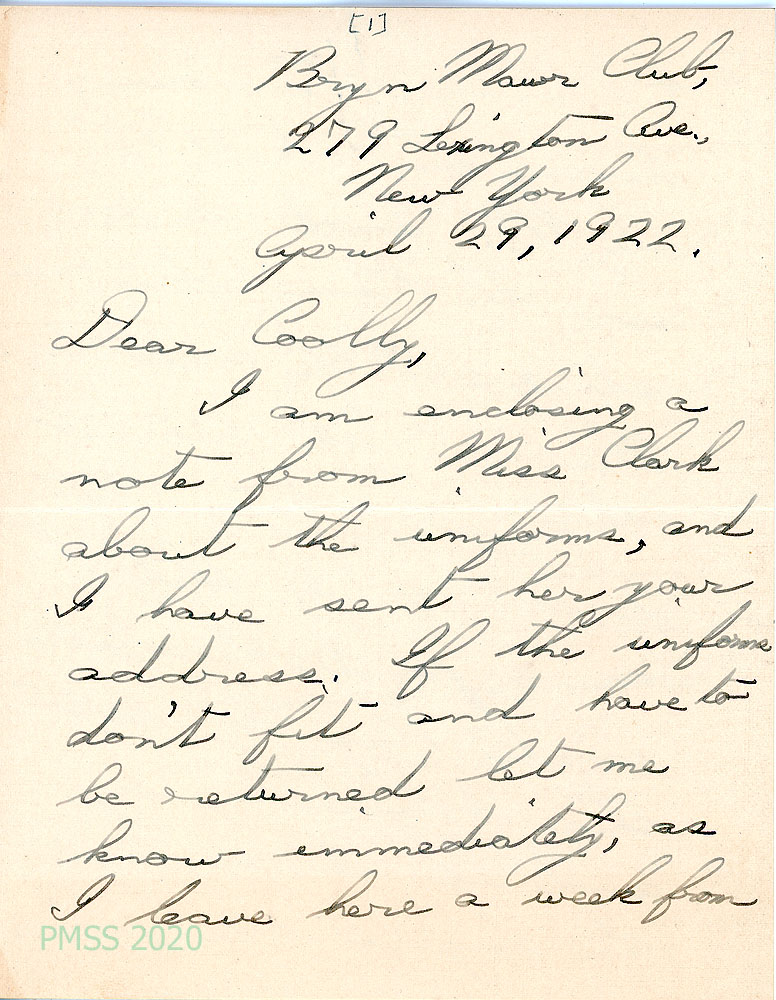 [1]
Bryn Mawr Club,
279 Lexington Ave.,
New York
April 29, 1922.
Dear Coolly,
I am enclosing a
note from Miss Clark
about the uniforms, and
I have sent her your
address. If the uniforms
don't fit and have to
be returned let me
know immediately, as
I leave here a week from
PMSS 2020